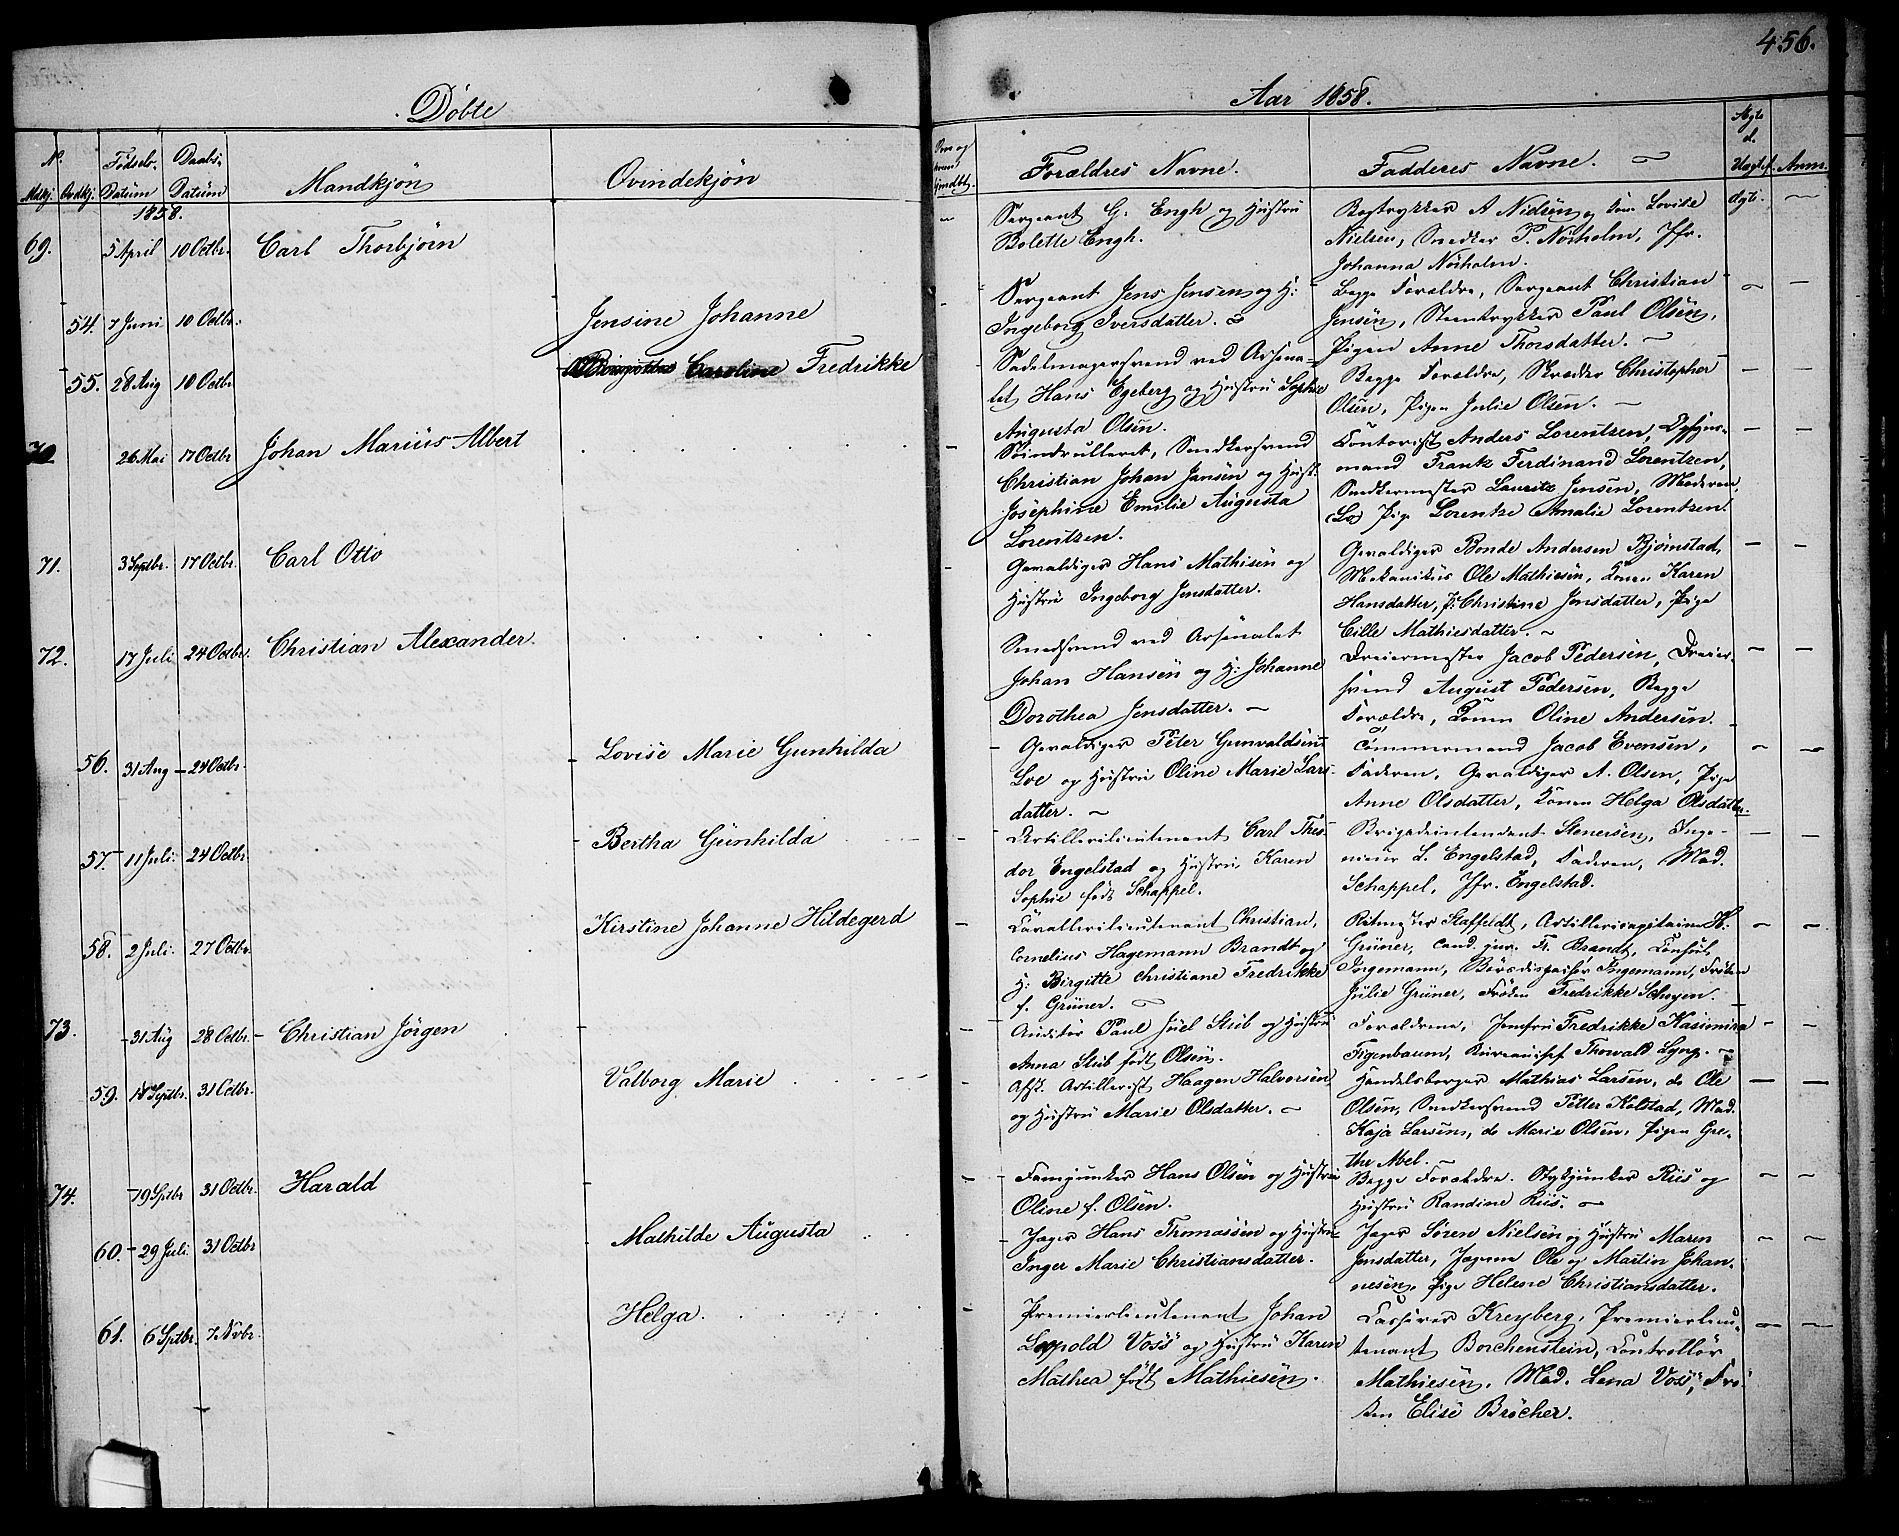 456.
Døbte
Aar 1858.
No.
Mdkj. Qvdkj. Fødsels-Datum Daabs-Datum Mandkjøn Qvindekjøn
Forældres Navne. Fadderes Navne. Anm.
1858.
69. 5 April 10 Octbr. Carl Thorbjørn
Sergeant G. Engh og Hustru
Bolette Engh.
Bogtrykker A Nielsen og Kone Lovise
Nielsen, Snedker P. Nørholm, Jfr.
Johanna Nørholm.
Ægte.
54. 7 Juni 10 Octbr. Jensine Johanne
Sergeant Jens Jensen og H:
Ingeborg Iversdatter.
Begge Forældre, Sergeant Christian
Jensen, Steentrykker Paul Olsen,
Pigen Anne Thorsdatter.
55. 28 Aug 10 Octbr Caroline Fredrikke
Sadelmagersvend ved Arsena-
let Hans Egeberg og Hustru Sophie
Augusta Olsen.
Begge Forældre, Skrædder Christopher
Olsen, Pigen Julie Olsen.
70 26 Mai 17 Octbr Johan Marius Albert
Søindrulleret, Snedkersvend
Christian Johan Jansen og Hust.
Josephine Emilie Augusta
Lorentzen.
Contorist Anders Lorentzen, Dykker-
mand Frantz Ferdinand Lorentzen,
Snedkermester Lauritz Jensen, Moderen,
Pige Lorentze Amalie Lorentzen.
71. 3 Septbr. 17 Octbr. Carl Otto
Gevaldiger Hans Mathisen og
Hustru Ingeborg Jensdatter.
Gevaldiger Bonde Andersen Bjørnstad,
Mekanikus Ole Mathiesen, Konen Karen
Hansdatter, P. Christine Jensdatter, Pige
Cille Mathiesdatter.
72. 17 Juli 24 Octbr. Christian Alexander.
Smedsvend ved Arsenalet
Johan Hansen og H: Johanne
Dorothea Jensdatter.
Dreiermester Jacob Pedersen, Dreier-
svend August Pedersen, Begge
Forældre, Konen Oline Andersen.
56. 31 Aug 24 Octbr. Lovise Marie Gunhilda
Gevaldiger Peter Gunvaldsen
Loe og Hustru Oline Marie Lars-
datter.
Tømmermand Jacob Evensen,
Faderen, Gevaldiger A. Olsen, Pige
Anne Olsdatter, Konen Helga Olsdatter.
57. 11 Juli. 24 Octbr. Bertha Gunhilda
Artillerilieutenant Carl Theo-
dor Engelstad og Hustru Karen
Sophie født Schappel.
Brigadeintendant Stenersen, Inge-
nieur S. Engelstad, Faderen, Mad.
Schappel, Jfr. Engelstad.
58. 2 Juli. 27 Octbr. Kirstine Johanne Hildegerd
Cavallerilieutenant Christian,
Cornelius Hagemann Brandt og
H: Birgitte Christiane Fredrikke
f. Grüner.
Ritmester Staffeldt, Artillericapitaine H.
Grüner, cand. jur. Fr. Brandt, Consul,
Ingemann, Børsdispachør Ingemann, Frøken
Julie Grüner, Frøken Fredrikke Schuyen.
73. 31 Aug 28 Octbr. Christian Jørgen
Auditør Paul Juel Stub og Hustru
Anna Stub født Olsen.
Forældrene, Jomfru Fredrikke Kasimira
Figenbaum, Bureauchef Thorvald Lyng.
59. 18 Septbr. 31 Octbr. Valborg Marie
Afsk. Artillerist Haagen Halvorsen
og Hustru Marie Olsdatter.
Handelsborger Mathias Larsen, do Ole
Olsen, Snedkersvend Petter Kolstad, Mad.
Kaja Larsen, do Marie Olsen, Pigen Gre-
the Moel.
74. 19 Sptbr 31 Octbr. Harald
Fanejunker Hans Olsen og Hustru
Oline f. Olsen.
Begge Forældre. Stykjunker Riis og
Hustru Randine Riis.
60. 29 Juli. 31 Octbr Mathilde Augusta
Jæger Hans Thomassen og Hustru
Inger Marie Christiansdatter.
Jæger Søren Nielsen og Hustru Maren
Jensdatter, Jægerne Ole og Martin Johan-
nesen, Pige Helene Christiansdatter.
61. 6 Sptbr. 7 Nvbr. Helga.
Premierlieutenant Johan
Leopold Voss og Hustru Karen
Mathea født Mathiesen.
Casserer Kreyberg, Premierlieu-
tenant Borchenstein, Controllør
Mathiesen, Mad. Lena Voss, Frø-
ken Elise Brøcher.